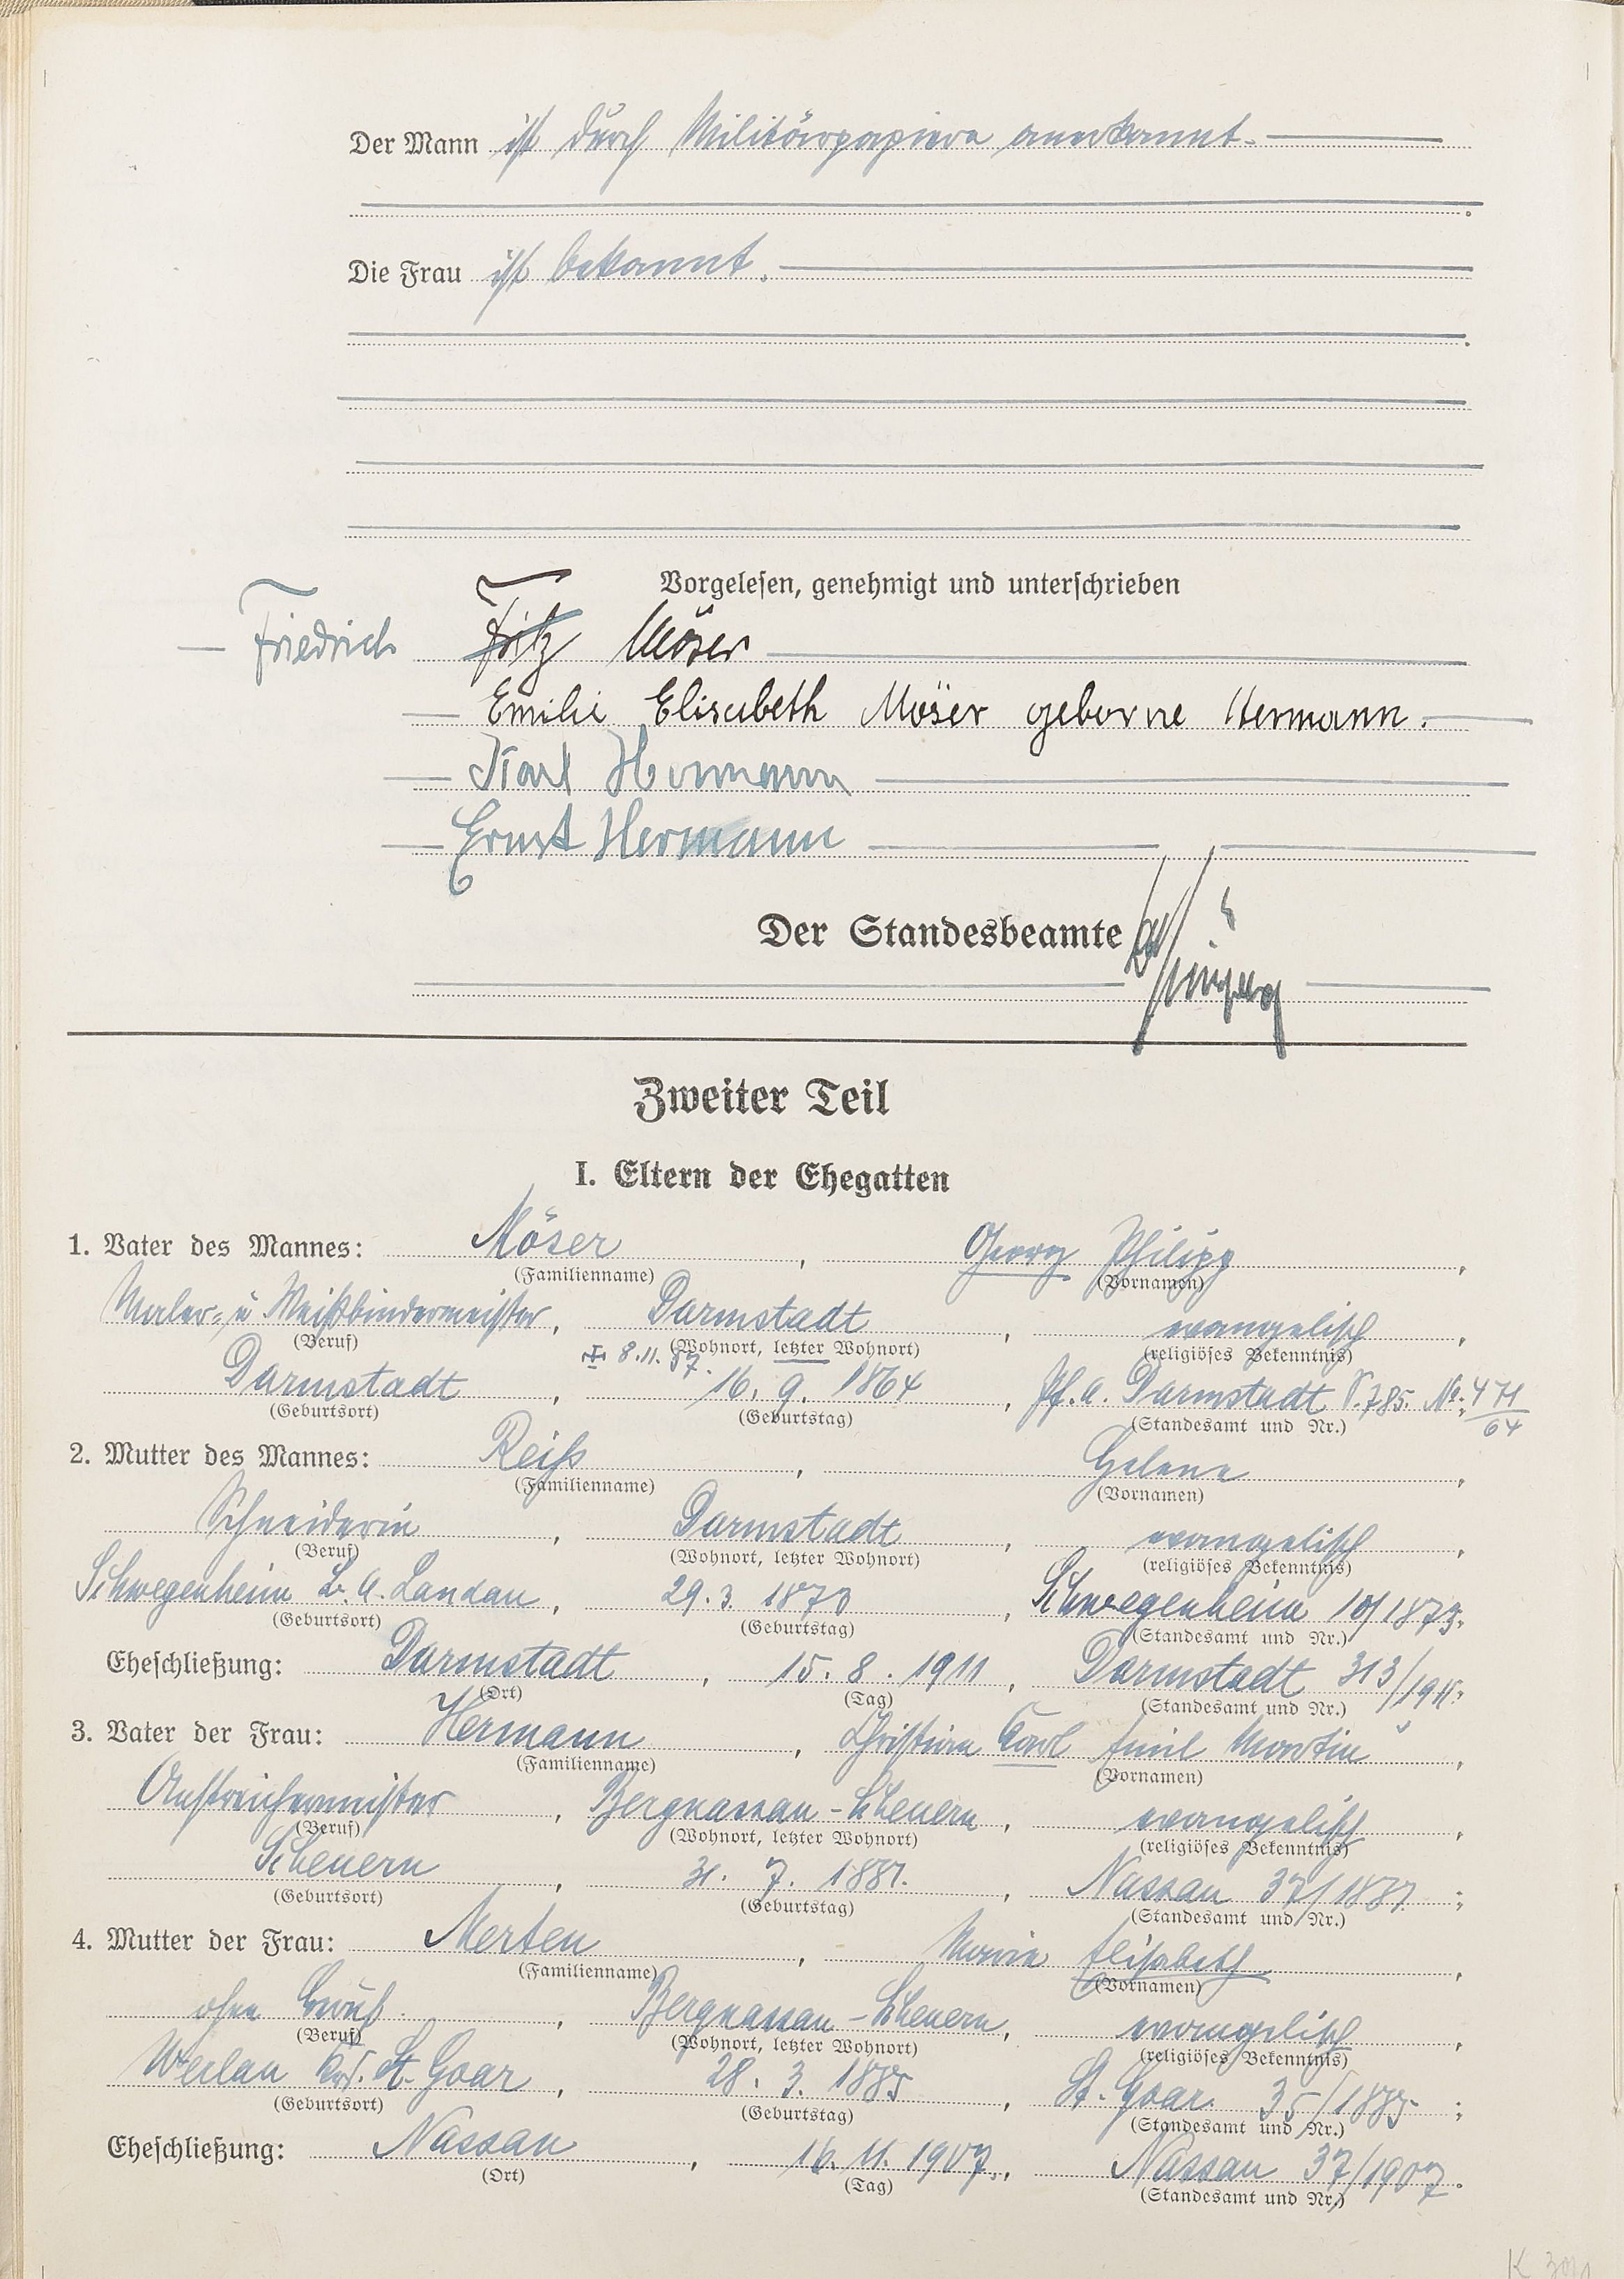 Der Mann ist durch Militärpapiere anerkannt.
Die Frau ist bekannt.
Vorgelesen, genehmigt und unterschrieben
Friedrich Fritz Möser
Emilie Elisabeth Möser geborne Hermann.
Karl Hermann
Ernst Hermann
Der Standesbeamte
Zweiter Teil
I. Eltern der Ehegatten
1. Vater des Mannes: Möser, Georg Philipp,
(Familienname) (Vornamen)
Maler- u Weißbindermeister, Darmstadt, evangelisch,
(Beruf) (Wohnort, letzter Wohnort) (religiöses Bekenntnis)
8.11.37.
Darmstadt, 16. 9. 1864, Pf. a. Darmstadt S. 785. No: 471/64
(Geburtsort) (Geburtstag) (Standesamt und Nr.)
2. Mutter des Mannes: Reiß, Helene,
(Familienname) (Vornamen)
Schneiderin, Darmstadt, evangelisch,
(Beruf) (Wohnort, letzter Wohnort) (religiöses Bekenntnis)
Schwegenheim B. A. Landau, 29. 3. 1873, Schwegenheim 10/1873.
(Geburtsort) (Geburtstag) (Standesamt und Nr.)
Eheschließung: Darmstadt, 15. 8. 1911, Darmstadt 313/1911.
(Ort) (Tag) (Standesamt und Nr.)
3. Vater der Frau: Hermann, Christian Karl Emil Martin,
(Familienname) (Vornamen)
Anstreichermeister, Bergnassau-Scheuern, evangelisch,
(Beruf) (Wohnort, letzter Wohnort) (religiöses Bekenntnis)
Scheuern, 31. 7. 1881., Nassau 37/1881;
(Geburtsort) (Geburtstag) (Standesamt und Nr.)
4. Mutter der Frau: Merten, Marie Elisabeth,
(Familienname) (Vornamen)
ohne Beruf, Bergnassau-Scheuern, evangelisch,
(Beruf) (Wohnort, letzter Wohnort) (religiöses Bekenntnis)
Werlau Krs. St. Goar, 28. 3. 1885, St. Goar 35/1885;
(Geburtsort) (Geburtstag) (Standesamt und Nr.)
Eheschließung: Nassau, 16. 11. 1907., Nassau 37/1907.
(Ort) (Tag) (Standesamt und Nr.)